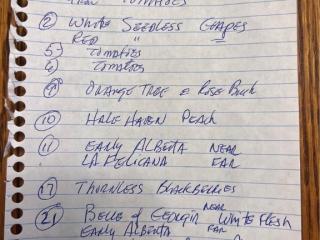 Tomatoes
② White Seedless Grapes
Red " "
5) Tomatoes
6) Tomatoes
⑧ Orange Tree & Rose Bush
⑩ Hale Haven Peach
⑪ Early Alberta Near
La Feliciana Far
⑰ Thornless Blackberries
㉑ Belle of Georgia Near White Flesh
Early Alberta Far